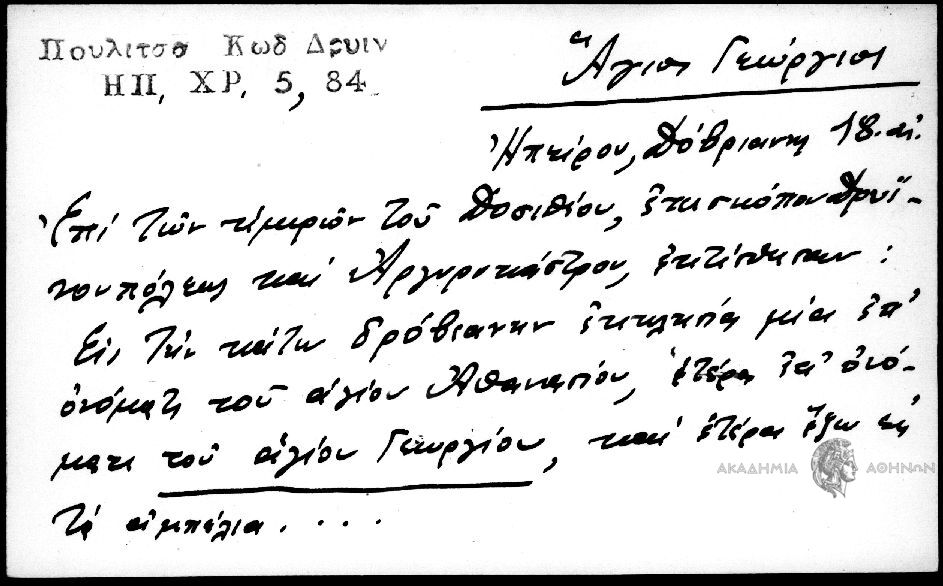 Πουλιτσα Κωδ Δρυιν
ΗΠ, ΧΡ. 5, 84
Ἅγιος Γεώργιος
Ἠπείρου, Δόβριανης 18. αἰ.
Ἐπί τῶν ἡμερῶν τοῦ Δοσιθέου, ἐπισκόπου Δρυϊ-
νουπόλεως καί Ἀργυροκάστρου, ἐκτίσθησαν:
Εἰς τήν κάτω δρόβιανην ἐκκλησία μία ἐπ'
ὀνόματι τοῦ ἁγίου Ἀθανασίου, ἑτέρα ἐπ' ὀνό-
ματι τοῦ ἁγίου Γεωργίου, καί ἑτέρα ἔξω εἰς
τά ἀμπέλια....
ΑΚΑΔΗΜΙΑ ΑΘΗΝΩΝ